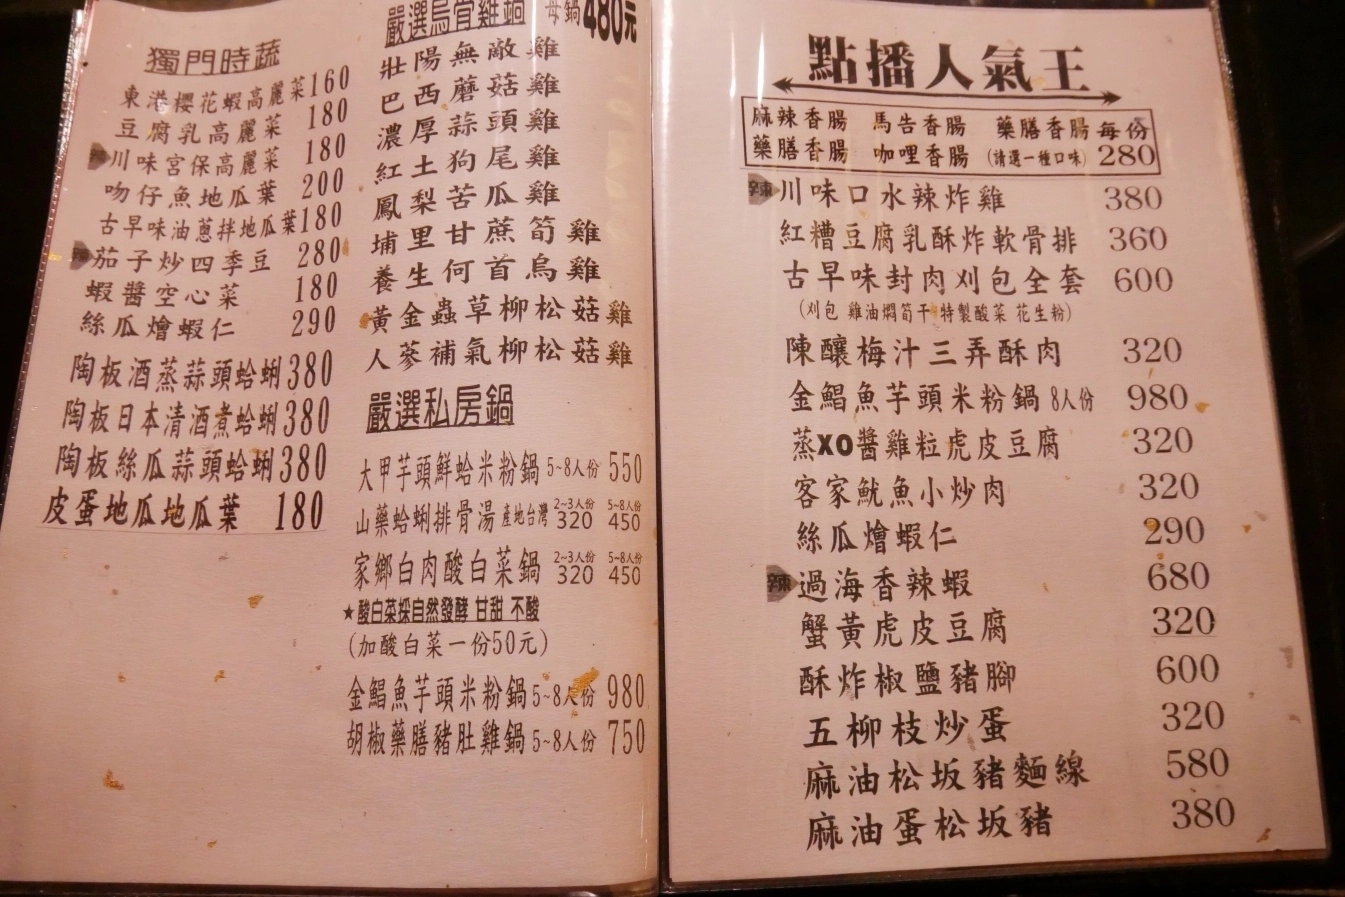 獨門時蔬
東港櫻花蝦高麗菜160
豆腐乳高麗菜 180
川味宮保高麗菜 180
吻仔魚地瓜葉 200
古早味油蔥拌地瓜葉180
茄子炒四季豆 280
蝦醬空心菜 180
絲瓜燴蝦仁 290
陶板酒蒸蒜頭蛤蜊380
陶板日本清酒煮蛤蜊380
陶板絲瓜蒜頭蛤蜊380
皮蛋地瓜地瓜葉 180
嚴選烏骨雞鍋 每鍋480元
壯陽無敵雞
巴西蘑菇雞
濃厚蒜頭雞
紅土狗尾雞
鳳梨苦瓜雞
埔里甘蔗筍雞
養生何首烏雞
黃金蟲草柳松菇雞
人蔘補氣柳松菇雞
嚴選私房鍋
大甲芋頭鮮蛤米粉鍋 5~8人份 550
山藥蛤蜊排骨湯 產地台灣 2~3人份 320 5~8人份 450
家鄉白肉酸白菜鍋 2~3人份 320 5~8人份 450
★酸白菜採自然發酵 甘甜 不酸
(加酸白菜一份50元)
金鯧魚芋頭米粉鍋 5~8人份 980
胡椒藥膳豬肚雞鍋 5~8人份 750
點播人氣王
麻辣香腸 馬告香腸 藥膳香腸 每份
藥膳香腸 咖哩香腸 (請選一種口味) 280
辣 川味口水辣炸雞 380
紅糟豆腐乳酥炸軟骨排 360
古早味封肉刈包全套 600
(刈包 雞油燜筍干 特製酸菜 花生粉)
陳釀梅汁三弄酥肉 320
金鯧魚芋頭米粉鍋 8人份 980
蒸XO醬雞粒虎皮豆腐 320
客家魷魚小炒肉 320
絲瓜燴蝦仁 290
辣 過海香辣蝦 680
蟹黃虎皮豆腐 320
酥炸椒鹽豬腳 600
五柳枝炒蛋 320
麻油松坂豬麵線 580
麻油蛋松坂豬 380